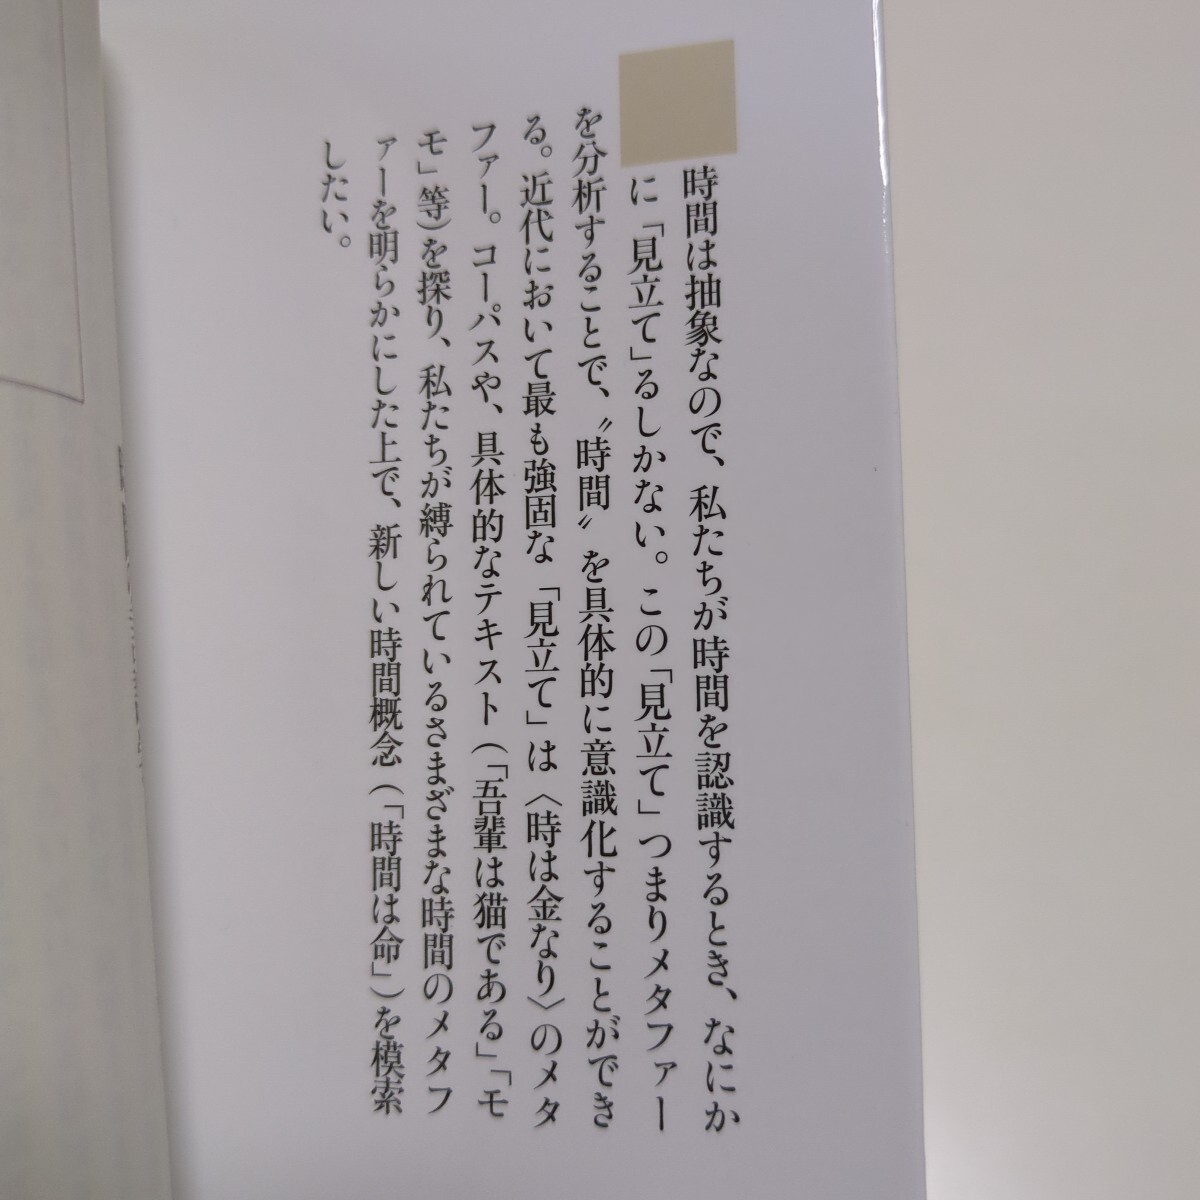 時間は抽象なので、私たちが時間を認識するとき、なにか
に「見立て」るしかない。この「見立て」つまりメタファー
を分析することで、〝時間〟を具体的に意識化することができ
る。近代において最も強固な「見立て」は〈時は金なり〉のメタ
ファー。コーパスや、具体的なテキスト（「吾輩は猫である」「モ
モ」等）を探り、私たちが縛られているさまざまな時間のメタフ
ァーを明らかにした上で、新しい時間概念（「時間は命」）を模索
したい。